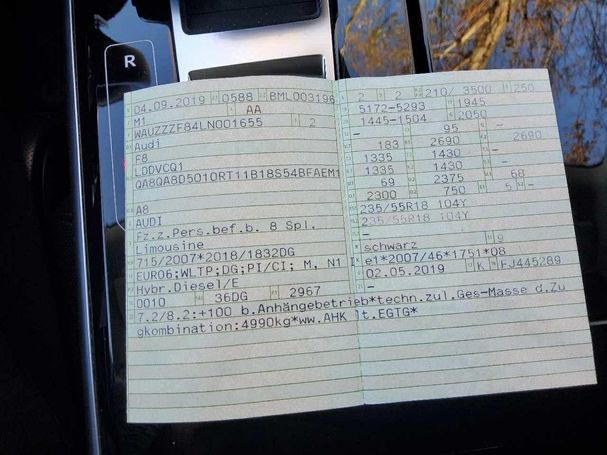 R
04.09.2019 0588 BML003196
M1 AA
WAUZZZF84LN001655 2
Audi
F8
LDDVCQ1
QA8QA8D5010RT11B18S54BFAEM1
A8
AUDI
Fz.z.Pers.bef.b. 8 Spl.
Limousine
715/2007*2018/1832DG
EURO6;WLTP;DG;PI/CI; M, N1 I
Hybr.Diesel/E
0010 36DG 2967
7.2/8.2:+100 b.Anhängebetrieb*techn.zul.Ges-Masse d.Zu
gkombination:4990kg*ww.AHK lt.EGTG*
2 2 210/ 3500 250
5172-5293 1945
1445-1504 2050
- 95 -
183 2690 -
1335 1430 2690
1335 1430 -
69 2375 68
2300 750 5 -
235/55R18 104Y
235/55R18 104Y
-
schwarz 9
e1*2007/46*1751*08
02.05.2019 K FJ445289
-